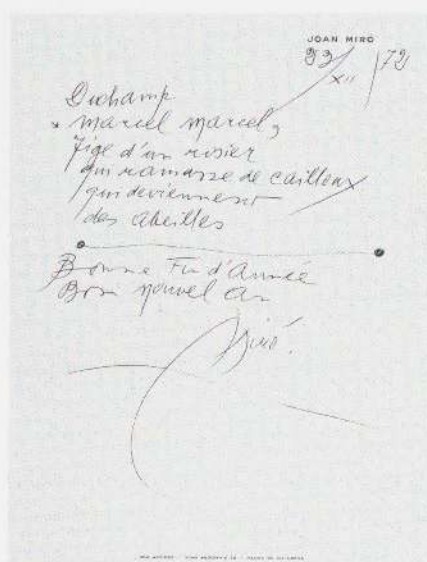 JOAN MIRÓ
23/XII/72
Duchamp
* Marcel Marcel,
Tige d'un rosier
qui ramasse de cailloux
qui deviennent
des abeilles
Bonne Fin d'Année
Bon nouvel An
Miró.